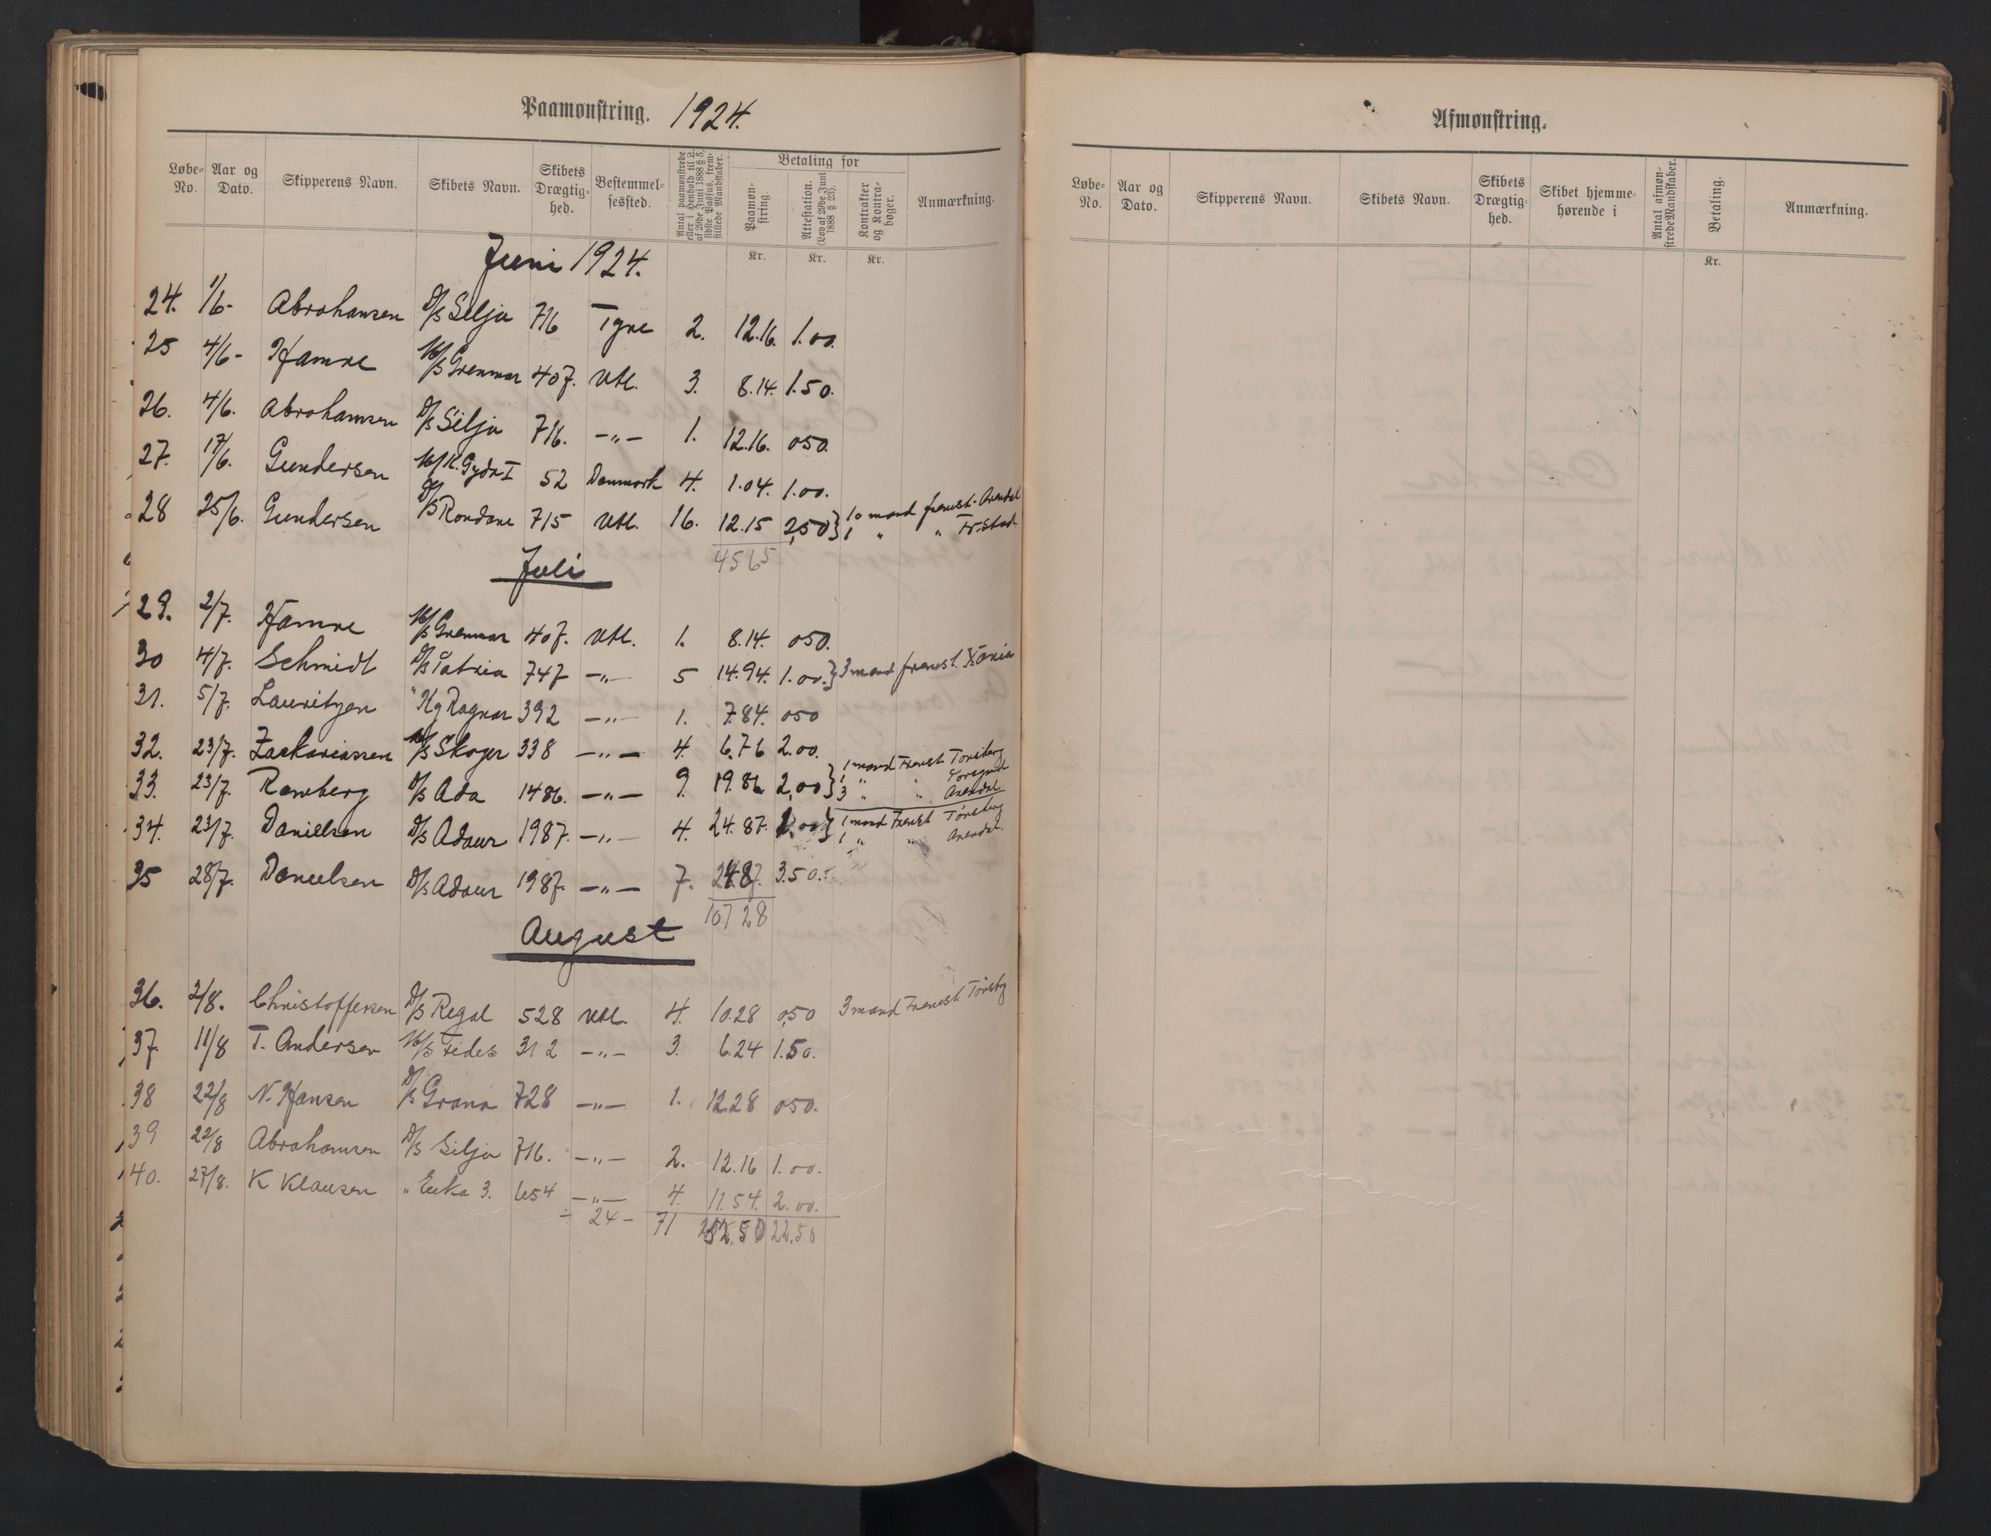 Paamønstring. 1924.
Løbe-No. Aar og Dato. Skipperens Navn. Skibets Navn. Skibets Drægtig-hed. Bestemmel-sessted. Antal paamønstrede eller i Henhold til L. af 29de Juni 1888 § 5, sidste Passus, frem-stillede Mandskaber. Betaling for Paamøn-string Attestation. (Lov af 29de Juni 1888 § 23). Kontrakter og Kontra-bøger. Anmærkning.
Kr. Kr. Kr.
Juni 1924.
24. 1/6- Abrahamsen D/S Silja 716 Tyne 2. 12.16. 1.00.
25 4/6- Hamre M/S Grenmar 407. Utl. 3. 8.14. 1.50.
26. 4/6. Abrahamsen D/S Silja 716. -"- 1. 12.16. 050.
27. 17/6. Gundersen M/K. Gyda I 52 Danmark 4. 1.04. 1.00.
28 25/6. Gundersen D/S Rondane 715 Utl. 16. 12.15 2,50 } 10 mand fremst. Arendal
1 " " Fr.stad
4565
Juli
29. 2/7. Hamre M/S Grenmar 407. Utl. 1. 8.14. 050.
30 4/7. Schmidt D/S Patria 747 -"- 5 14.94. 1.00. } 3 mand fremst.
31. 5/7. Lauritzen " Kg Ragnar 392 -"- 1. 7.84. 050
32. 23/7. Zachariassen M/S Skoger 338 -"- 4. 6.76 2.00.
33. 23/7. Ramberg D/S Ada 1486. -"- 9. 19.86 2,00 } 1 mand Fremst Tønsberg
1 " " Porsgrund
3 " " Arendal
34. 23/7. Danielsen D/S Adaur 1987. -"- 4. 24.87. 1.00 } 1 mand Fremst Tønsberg
1 " " Arendal.
35 28/7. Danielsen D/S Adaur 1987. -"- 7. 24.87. 3.50.
107 28
August
36. 2/8. Christoffersen D/S Regal 528 Utl. 4. 10.28 0,50 3 mand Fremst. Tønsbg
37. 11/8 T. Andersen M/S Fides 312 -"- 3. 6.24 1.50.
38 22/8 N. Hansen D/S Grana 728 -"- 1. 12.28 050.
39 22/8 Abrahamsen D/S Silja 716. -"- 2. 12.16 1.00.
40. 27/8. K Klausen " Eika 3. 654 -"- 4. 11.54. 2.00.
÷ 24 - 71 52.50 22.50
Afmønstring.
Løbe-No. Aar og Dato. Skipperens Navn. Skibets Navn. Skibets Drægtig-hed. Skibet hjemme-hørende i Antal afmøn-strede Mandskaber. Betaling. Anmærkning.
Kr.